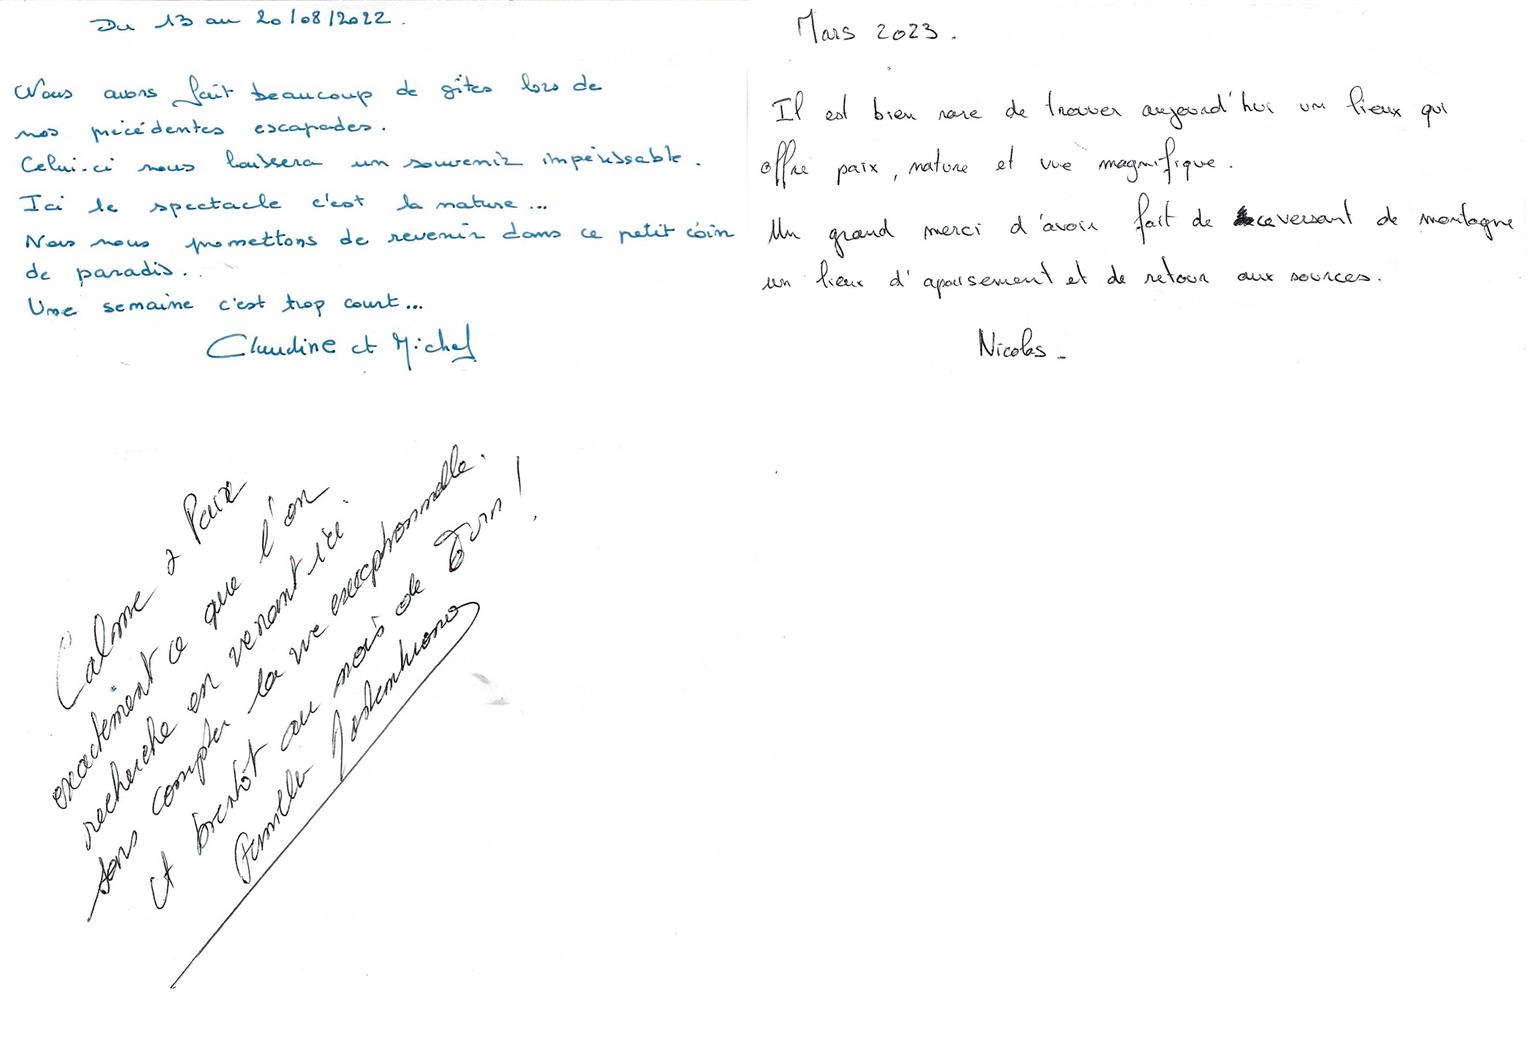 Du 13 au 20/08/2022.
Nous avons fait beaucoup de gîtes lors de
nos précédentes escapades.
Celui-ci nous laissera un souvenir impérissable.
Ici le spectacle c'est la nature...
Nous nous promettons de revenir dans ce petit coin
de paradis...
Une semaine c'est trop court...
Claudine et Michel
Mars 2023.
Il est bien rare de trouver aujourd'hui un lieux qui
offre paix, nature et vue magnifique.
Un grand merci d'avoir fait de ce versant de montagne
un lieux d'apaisement et de retour aux sources.
Nicolas
Calme & Paix
exactement ce que l'on
recherche en venant ici.
sans compter la vue exceptionnelle.
et bientôt au mois de Juin !
Famille